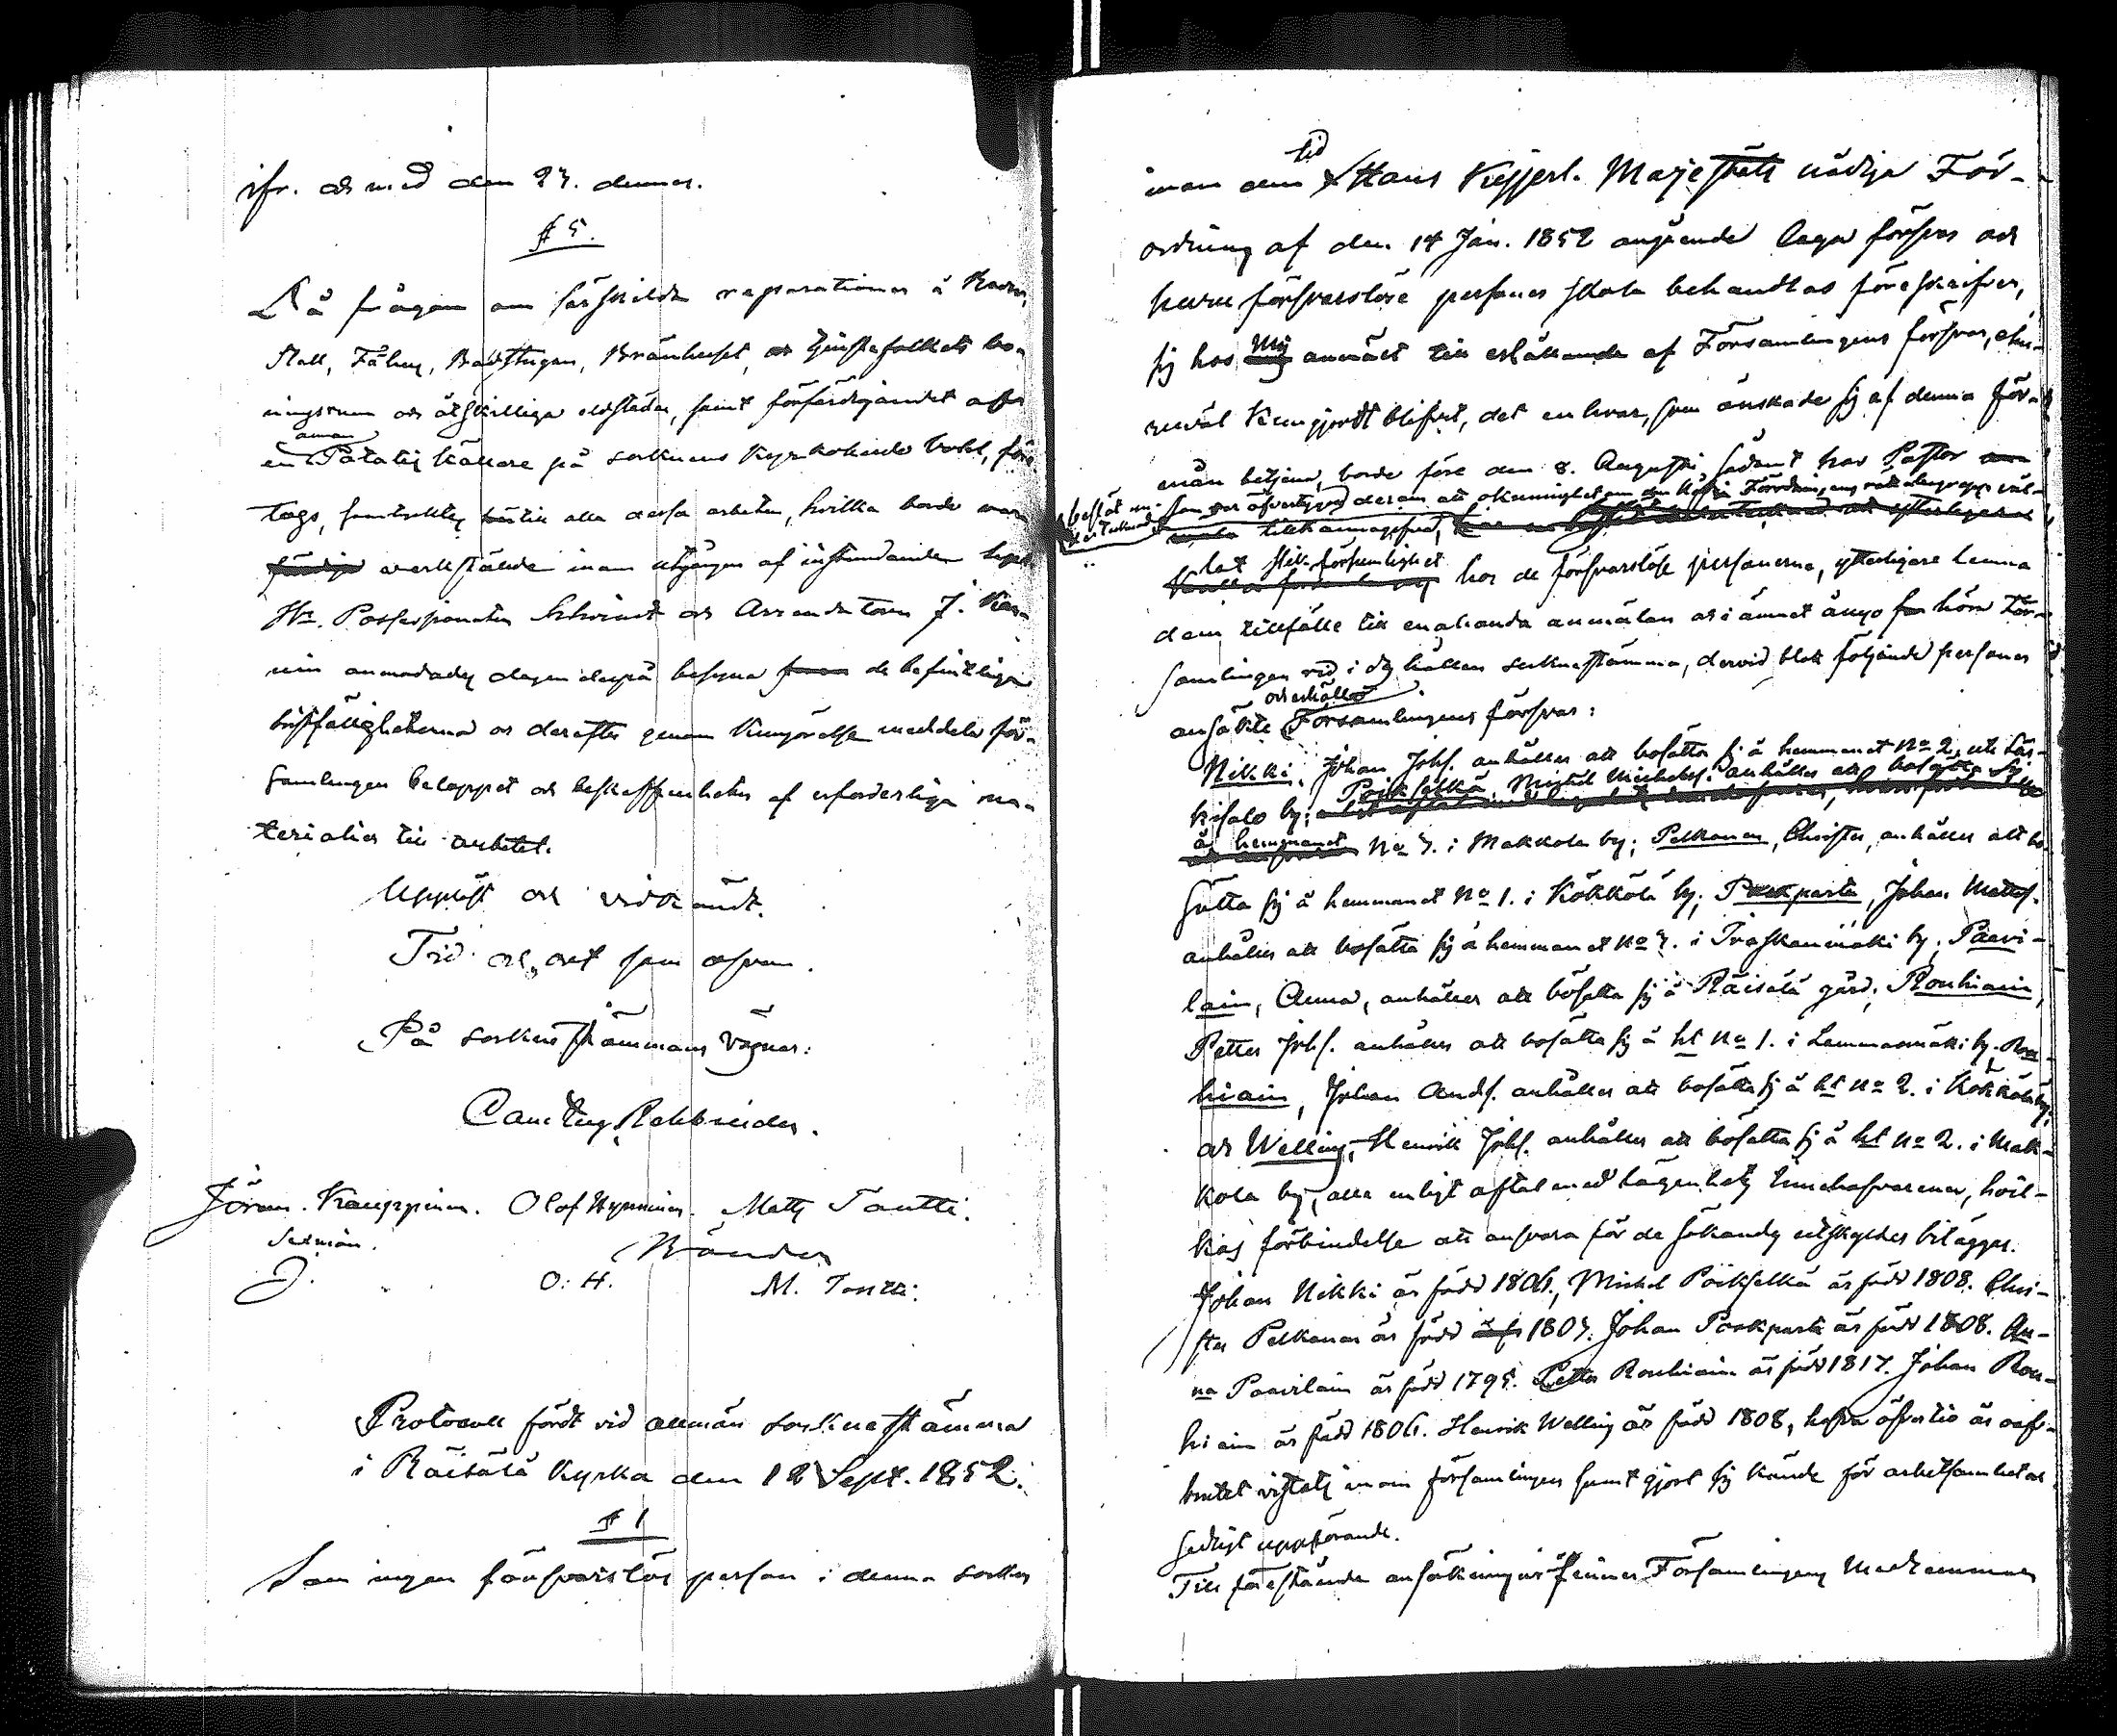 ifr. och med den 27. dennes.
§ 5.
På frågan om särskilda reparationer å
Stall, Fähus, Badstugan, Bränhuset, och tjenstefolkets bo-
ningsrum och åtskilliga eldstäder, samt förfärdigandet af
annan
en Potatis källare på socknens Kyrkoherde bohl, före
togs, samtyckte till alla dessa arbeten, hvilka borde vara
verkställde inom utgången af instundande Sept
Hr. Possessionaten och Arrendatorn J.
nin anmodades dagen derpå besyna de befintliga
bristfälligheterna och derefter genom Kungörelse meddela för-
samlingen beloppet och beskaffenheten af erforderliga ma-
terialier till arbetet.
Uppläst och vidkändt.
Tid och ort som ofvan.
På sockne stämmans vägnar:
Carl Aug. Rehbinder.
Jöran Kauppinen. Olof Hynninen. Matts Tontti.
Sexmän. Bönder
J. O: H. M. Tontti.
Protocoll fördt vid allmän sockne stämma
i Räisälä Kyrka den 12 Sept. 1852.
§ 1
Som ingen försvarslös person i denna socken
tid
inom den Hans Kejserl. Majestäts nådiga För-
ordning af den 14 Jan. 1852 angående laga försvar och
huru försvarslöse personer skola behandlas föreskrifver,
sig hos mig anmält till erhållande af Församlingens försvar, ehu-
ruväl Kungjordt blifvit, det en hvar, som önskade sig af denna för-
mån betjena, borde före den 8. Augusti sådant hos Pastor
som var öfvertygad derom att okunnighet om den Nådiga Förordningens rätta begrepp vål-
lat slik försumlighet
hos de försvarslöse personerna, ytterligare lemna
dem tillfälle till enahanda anmälan och i ämnet ånyo höra För-
samlingen vid i dag hållen socknestämma, dervid blott följande personer
och erhölle
ansökte Församlingens försvar:
Nikki, Johan Johs. anhåller att bosätta sig å hemmanet No 2, uti Sär-
Pöikselkä, Mickel Michels. anhåller att bosätta sig
kisalo by;
å hemmanet No 7. i Makkola by; Pelkonen, Christer, anhåller att bo-
sätta sig å hemmanet No 1. i Kökkölä by; Pockparta, Johan Matts.
anhåller att bosätta sig å hemmanet No 7. i Ivaskanmäki by; Paavi-
lain, Anna, anhåller att bosätta sig å Räisälä gård; Rouhiain,
Petter Johs. anhåller att bosätta sig å ht No 1. i Lammasmäki by; Rou-
hiain, Johan Ands. anhåller att bosätta sig å ht No 2. i Kökkölä by;
och Welling, Henrik Johs. anhåller att bosätta sig å ht No 2. i Mak-
kola by, alla enligt aftal med lägenhets innehafvarena, hvil-
kas förbindelse att ansvara för de sökandes utskylder bilägges.
Johan Nikki är född 1806, Mickel Pöikselkä är född 1808. Chri-
ster Pelkonen är född 1807. Johan Pockparta är född 1808. An-
na Paavilain är född 1795. Petter Rouhiain är född 1817. Johan Rou-
hiain är född 1806. Henrik Welling är född 1808, hafva öfver tio år oaf-
brutet vistats inom församlingen samt gjort sig kände för arbetsamhet och
sedligt uppförande.
Till förestående ansökningar finner Församlingens Medlemmar